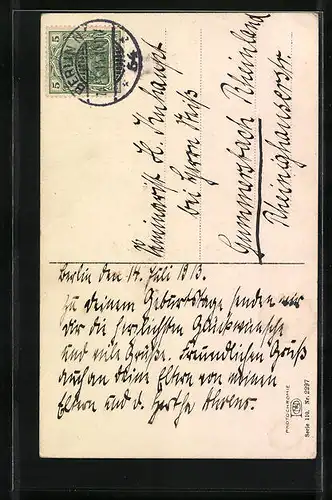 5 5
BERLIN N
54
Seminarist H.
bei Herrn Weiß
Gummersbach Rheinland
Berlin den 14. Juli 1913.
Zu deinem Geburtstage senden wir
dir die herzlichsten Glückwünsche
und viele Grüße. Freundlichen Gruß
auch an deine Eltern von meinen
Eltern und d. Hertha Ahrens.
PHOTOCHROMIE
Serie 110. Nr. 2297